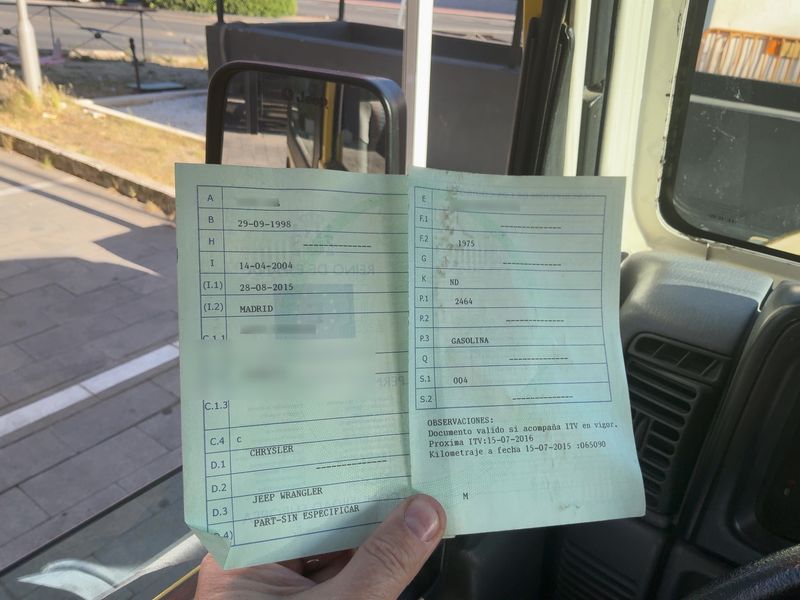 A
B 29-09-1998
H --------------
I 14-04-2004
(I.1) 28-08-2015
(I.2) MADRID
C.1.1
C.1.3
C.4 C
D.1 CHRYSLER
--------------
D.2
D.3 JEEP WRANGLER
D.4) PART-SIN ESPECIFICAR
E
F.1 --------------
F.2 1975
G --------------
K ND
P.1 2464
P.2 --------------
P.3 GASOLINA
Q --------------
S.1 004
S.2 --------------
OBSERVACIONES:
Documento valido si acompaña ITV en vigor.
Proxima ITV:15-07-2016
Kilometraje a fecha 15-07-2015 :065090
M